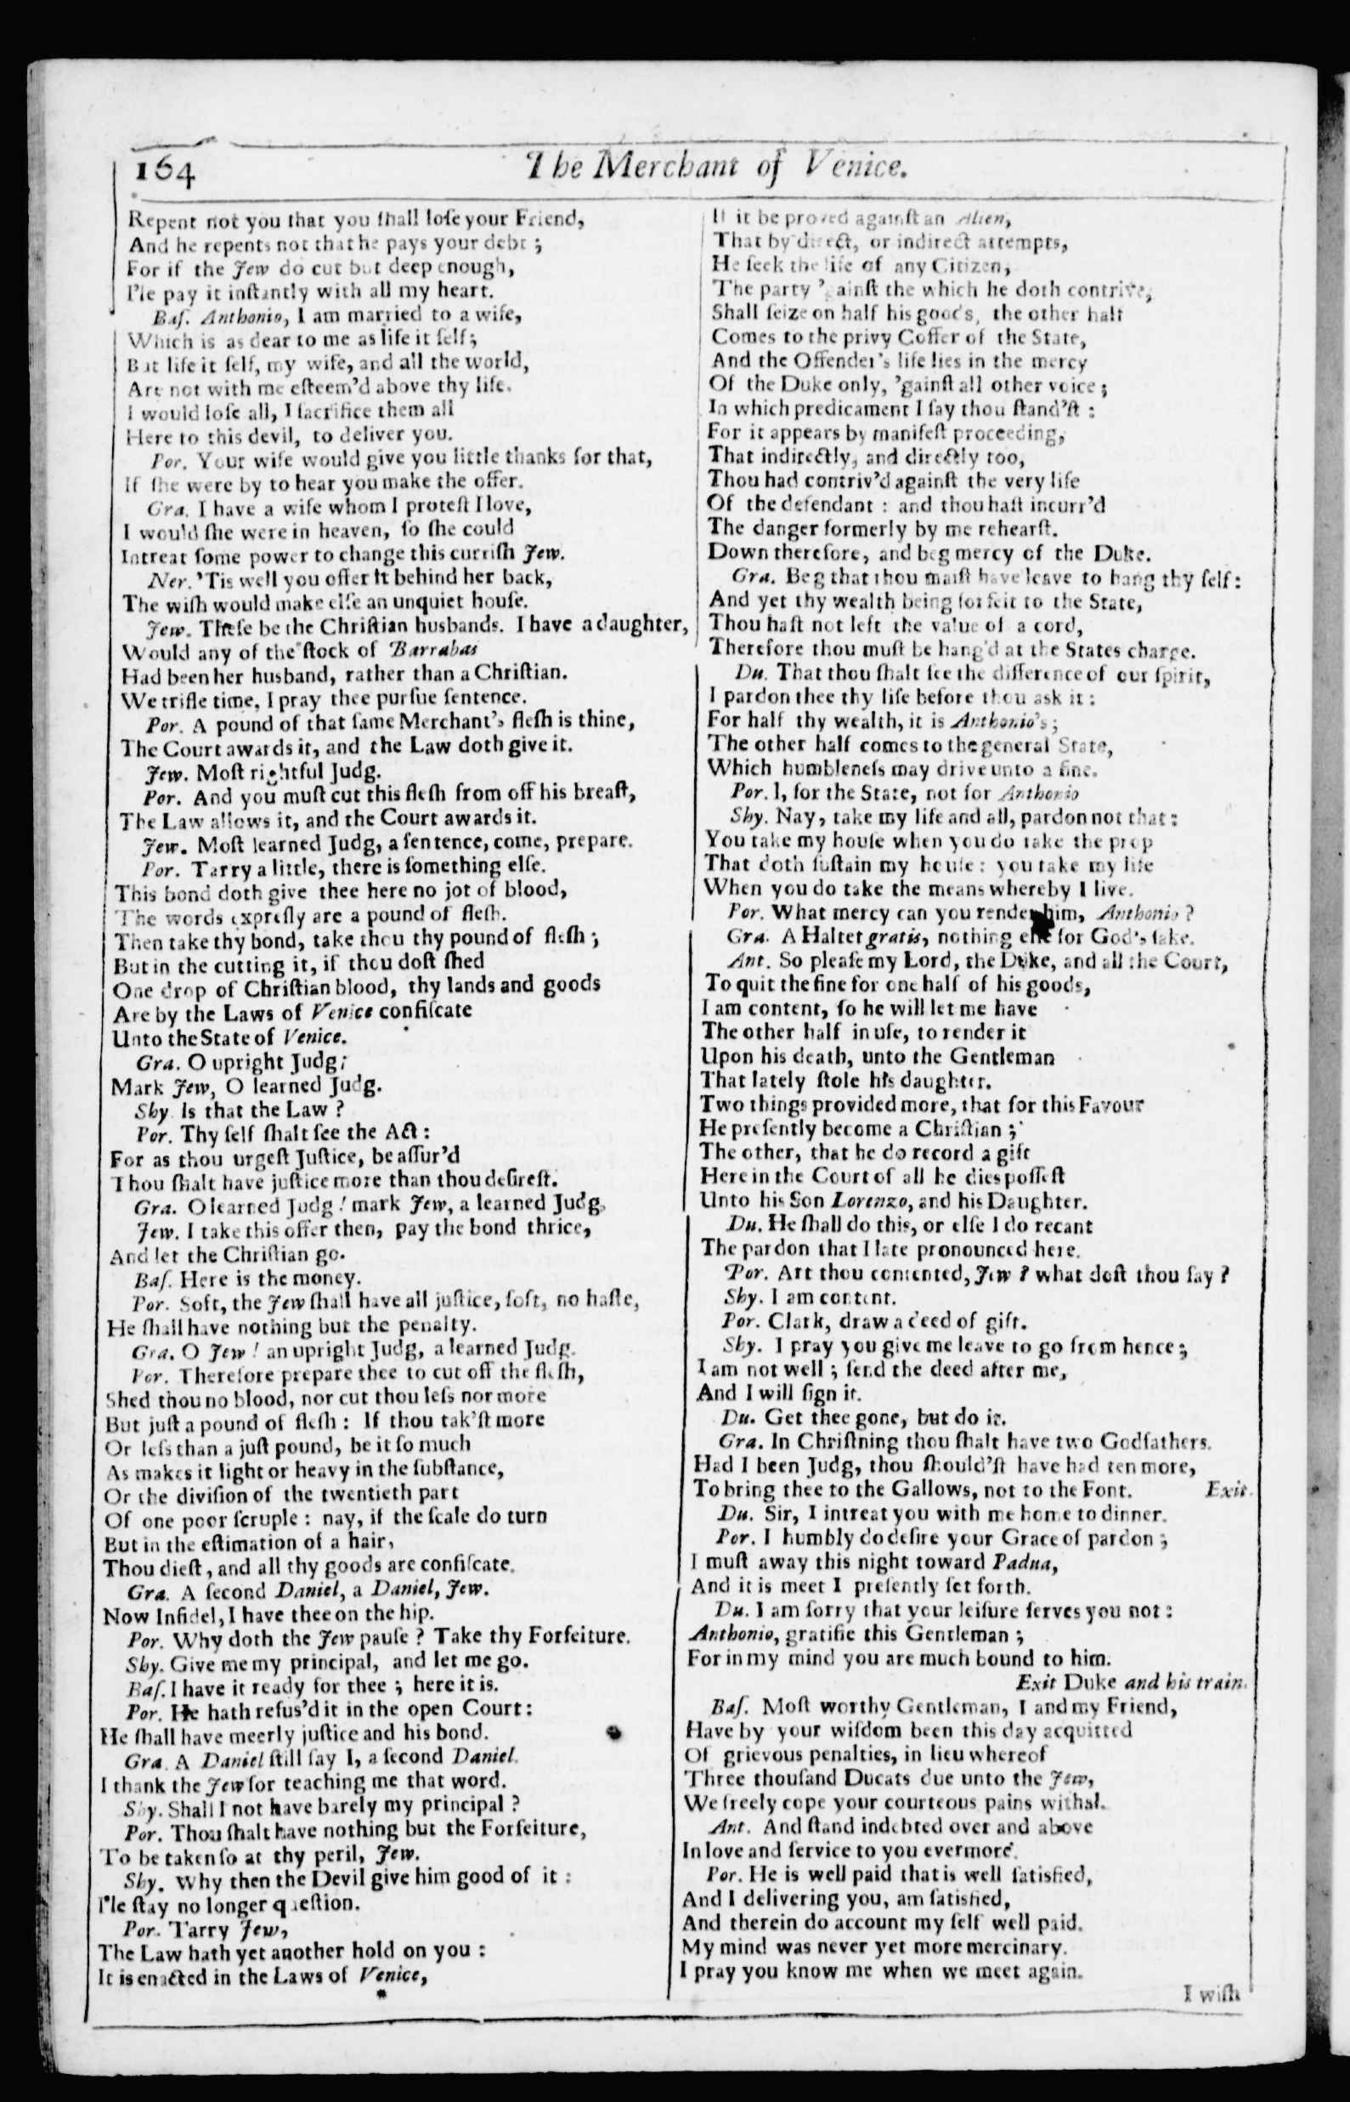 164
The Merchant of Venice.
Repent not you that you ſhall loſe your Friend,
And he repents not that he pays your debt ;
For if the Jew do cut but deep enough,
I'le pay it inſtantly with all my heart.
Baſ. Anthonio, I am married to a wife,
Which is as dear to me as life it ſelf;
But life it ſelf, my wife, and all the world,
Are not with me eſteem'd above thy life.
I would loſe all, I ſacrifice them all
Here to this devil, to deliver you.
Por. Your wife would give you little thanks for that,
If ſhe were by to hear you make the offer.
Gra. I have a wife whom I proteſt I love,
I would ſhe were in heaven, ſo ſhe could
Intreat ſome power to change this curriſh Jew.
Ner. 'Tis well you offer it behind her back,
The wiſh would make elſe an unquiet houſe.
Jew. Theſe be the Chriſtian husbands. I have a daughter,
Would any of the ſtock of Barrabas
Had been her husband, rather than a Chriſtian.
We trifle time, I pray thee purſue ſentence.
Por. A pound of that ſame Merchant's fleſh is thine,
The Court awards it, and the Law doth give it.
Jew. Moſt rightful Judg.
Por. And you muſt cut this fleſh from off his breaſt,
The Law allows it, and the Court awards it.
Jew. Moſt learned Judg, a ſentence, come, prepare.
Por. Tarry a little, there is ſomething elſe.
This bond doth give thee here no jot of blood,
The words expreſly are a pound of fleſh.
Then take thy bond, take thou thy pound of fleſh ;
But in the cutting it, if thou doſt ſhed
One drop of Chriſtian blood, thy lands and goods
Are by the Laws of Venice confiſcate
Unto the State of Venice.
Gra. O upright Judg;
Mark Jew, O learned Judg.
Shy. Is that the Law ?
Por. Thy ſelf ſhalt ſee the Act :
For as thou urgeſt Juſtice, be aſſur'd
Thou ſhalt have juſtice more than thou deſireſt.
Gra. O learned Judg ! mark Jew, a learned Judg,
Jew. I take this offer then, pay the bond thrice,
And let the Chriſtian go.
Baſ. Here is the money.
Por. Soft, the Jew ſhall have all juſtice, ſoft, no haſte,
He ſhall have nothing but the penalty.
Gra. O Jew ! an upright Judg, a learned Judg.
Por. Therefore prepare thee to cut off the fleſh,
Shed thou no blood, nor cut thou leſs nor more
But juſt a pound of fleſh : If thou tak'ſt more
Or leſs than a juſt pound, be it ſo much
As makes it light or heavy in the ſubſtance,
Or the diviſion of the twentieth part
Of one poor ſcruple : nay, if the ſcale do turn
But in the eſtimation of a hair,
Thou dieſt, and all thy goods are confiſcate.
Gra. A ſecond Daniel, a Daniel, Jew.
Now Infidel, I have thee on the hip.
Por. Why doth the Jew pauſe ? Take thy Forfeiture.
Shy. Give me my principal, and let me go.
Baſ. I have it ready for thee ; here it is.
Por. He hath refus'd it in the open Court :
He ſhall have meerly juſtice and his bond.
Gra. A Daniel ſtill ſay I, a ſecond Daniel.
I thank the Jew for teaching me that word.
Shy. Shall I not have barely my principal ?
Por. Thou ſhalt have nothing but the Forfeiture,
To be taken ſo at thy peril, Jew.
Shy. Why then the Devil give him good of it :
I'le ſtay no longer queſtion.
Por. Tarry Jew,
The Law hath yet another hold on you :
It is enacted in the Laws of Venice,
If it be proved againſt an Alien,
That by direct, or indirect attempts,
He ſeek the life of any Citizen,
The party 'gainſt the which he doth contrive,
Shall ſeize on half his goods, the other half
Comes to the privy Coffer of the State,
And the Offender's life lies in the mercy
Of the Duke only, 'gainſt all other voice ;
In which predicament I ſay thou ſtand'ſt :
For it appears by manifeſt proceeding,
That indirectly, and directly too,
Thou had contriv'd againſt the very life
Of the defendant : and thou haſt incurr'd
The danger formerly by me rehearſt.
Down therefore, and beg mercy of the Duke.
Gra. Beg that thou maiſt have leave to hang thy ſelf :
And yet thy wealth being forfeit to the State,
Thou haſt not left the value of a cord,
Therefore thou muſt be hang'd at the States charge.
Du. That thou ſhalt ſee the difference of our ſpirit,
I pardon thee thy life before thou ask it :
For half thy wealth, it is Anthonio's ;
The other half comes to the general State,
Which humbleneſs may drive unto a fine.
Por. I, for the State, not for Anthonio
Shy. Nay, take my life and all, pardon not that :
You take my houſe when you do take the prop
That doth ſuſtain my houſe : you take my life
When you do take the means whereby I live.
Por. What mercy can you render him, Anthonio ?
Gra. A Halter gratis, nothing elſe for God's ſake.
Ant. So pleaſe my Lord, the Duke, and all the Court,
To quit the fine for one half of his goods,
I am content, ſo he will let me have
The other half in uſe, to render it
Upon his death, unto the Gentleman
That lately ſtole his daughter.
Two things provided more, that for this Favour
He preſently become a Chriſtian ;
The other, that he do record a gift
Here in the Court of all he dies poſſeſt
Unto his Son Lorenzo, and his Daughter.
Du. He ſhall do this, or elſe I do recant
The pardon that I late pronounced here.
Por. Art thou contented, Jew ? what doſt thou ſay ?
Shy. I am content.
Por. Clark, draw a deed of gift.
Shy. I pray you give me leave to go from hence ;
I am not well ; ſend the deed after me,
And I will ſign it.
Du. Get thee gone, but do it.
Gra. In Chriſtning thou ſhalt have two Godfathers.
Had I been Judg, thou ſhould'ſt have had ten more,
To bring thee to the Gallows, not to the Font. Exit.
Du. Sir, I intreat you with me home to dinner.
Por. I humbly do deſire your Grace of pardon ;
I muſt away this night toward Padua,
And it is meet I preſently ſet forth.
Du. I am ſorry that your leiſure ſerves you not :
Anthonio, gratifie this Gentleman ;
For in my mind you are much bound to him.
Exit Duke and his train.
Baſ. Moſt worthy Gentleman, I and my Friend,
Have by your wiſdom been this day acquitted
Of grievous penalties, in lieu whereof
Three thouſand Ducats due unto the Jew,
We freely cope your courteous pains withal.
Ant. And ſtand indebted over and above
In love and ſervice to you evermore.
Por. He is well paid that is well ſatisfied,
And I delivering you, am ſatisfied,
And therein do account my ſelf well paid.
My mind was never yet more mercinary.
I pray you know me when we meet again.
I wiſh